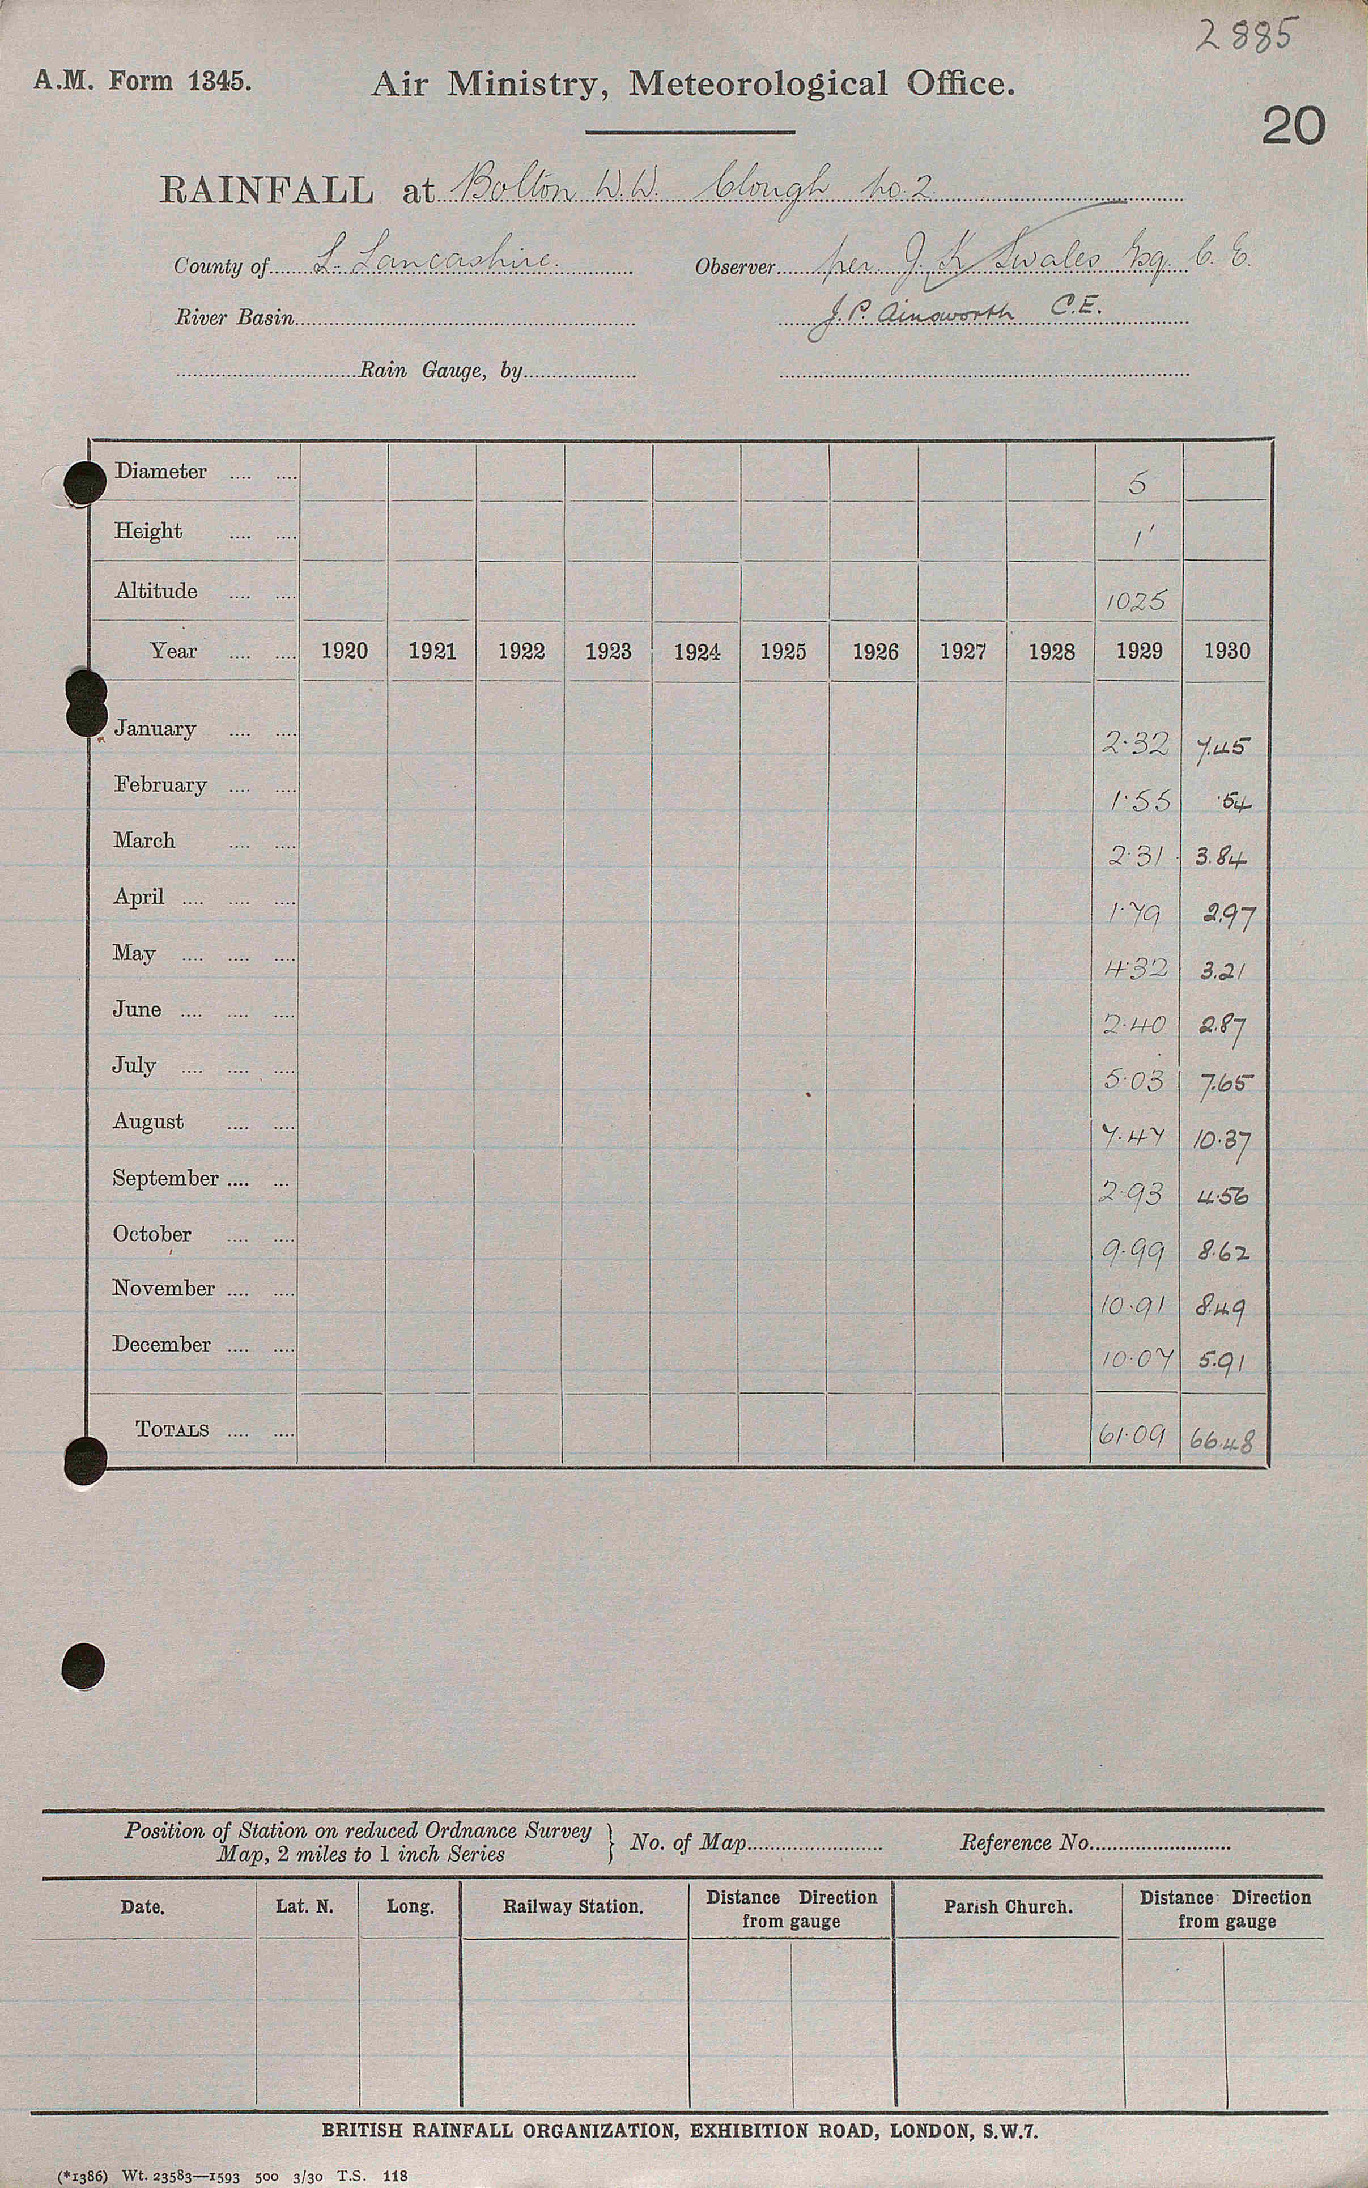 2885
A.M. Form 1345. Air Ministry, Meteorological Office.
20
RAINFALL at Bolton W.W. Clough No. 2
County of S. Lancashire. Observer per J. K. Swales Esq. C.E.
River Basin J. P. Ainsworth C.E.
Rain Gauge, by
Diameter .... .... 5
Height .... .... 1'
Altitude .... .... 1025
Year .... .... 1920 1921 1922 1923 1924 1925 1926 1927 1928 1929 1930
January .... .... 2.32 7.45
February .... .... 1.55 .54
March .... .... 2.31 3.84
April .... .... .... 1.79 2.97
May .... .... .... 4.32 3.21
June .... .... .... 2.40 2.87
July .... .... .... 5.03 7.65
August .... .... 7.47 10.37
September .... ... 2.93 4.56
October .... .... 9.99 8.62
November .... .... 10.91 8.49
December .... .... 10.07 5.91
TOTALS .... .... 61.09 66.48
Position of Station on reduced Ordnance Survey
Map, 2 miles to 1 inch Series } No. of Map Reference No.
Date. Lat. N. Long. Railway Station. Distance Direction from gauge Parish Church. Distance Direction from gauge
BRITISH RAINFALL ORGANIZATION, EXHIBITION ROAD, LONDON, S.W.7.
(*1386) Wt. 23583—1593 500 3/30 T.S. 118